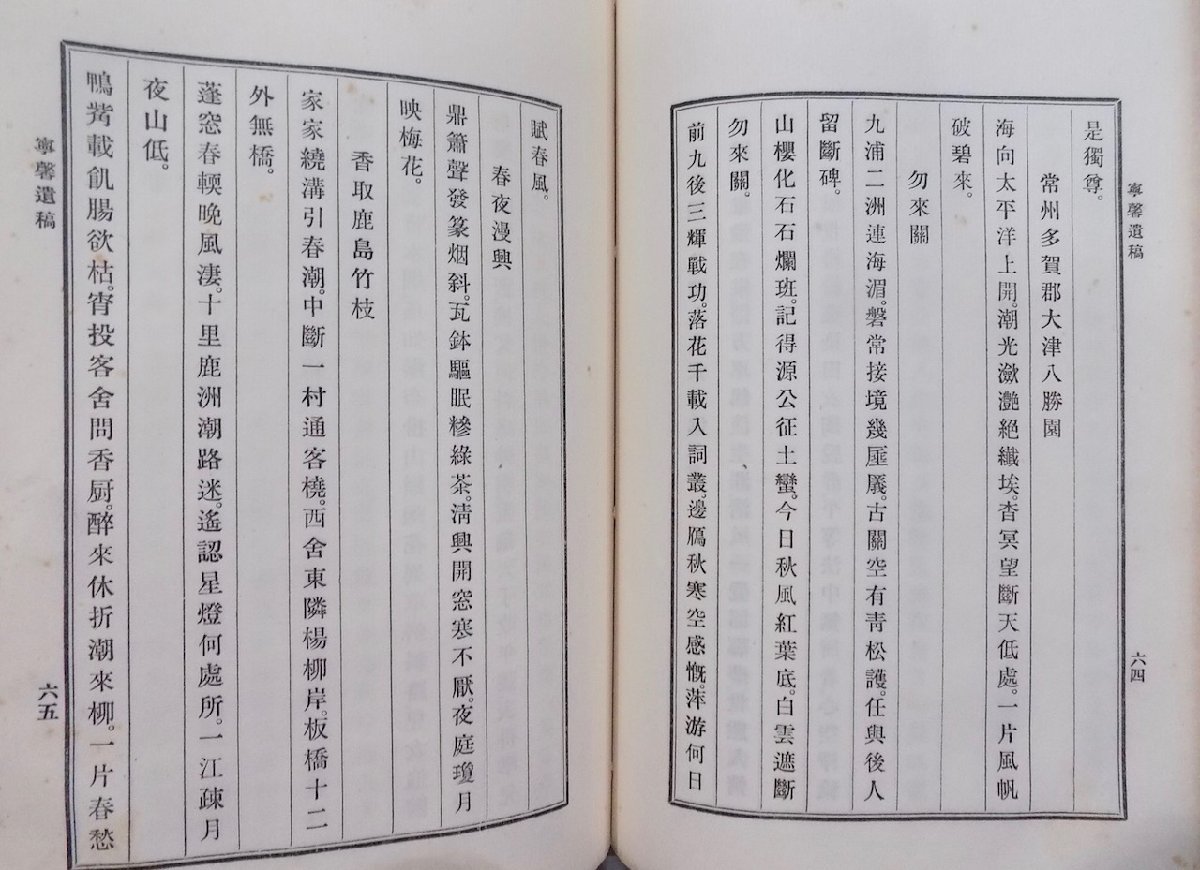 寧馨遺稿
六四
是獨尊。
常州多賀郡大津八勝園
海向太平洋上開。潮光瀲灔絕纖埃。杳冥望斷天低處。一片風帆
破碧來。
勿來關
九浦二洲連海湄。磐常接境幾厜㕒。古關空有青松護。任與後人
留斷碑。
山櫻化石石爛班。記得源公征土蠻。今日秋風紅葉底。白雲遮斷
勿來關。
前九後三輝戰功。落花千載入詞叢。邊鴈秋寒空感慨。萍游何日
賦春風。
春夜漫興
鼎簫聲發篆烟斜。瓦鉢驅眠糝綠茶。淸興開窓寒不厭。夜庭瓊月
映梅花。
香取鹿島竹枝
家家繞溝引春潮。中斷一村通客橈。西舍東隣楊柳岸。板橋十二
外無橋。
蓬窓春輭晚風凄。十里鹿洲潮路迷。遙認星燈何處所。一江疎月
夜山低。
鴨觜載飢腸欲枯。宵投客舍問香厨。醉來休折潮來柳。一片春愁
寧馨遺稿
六五